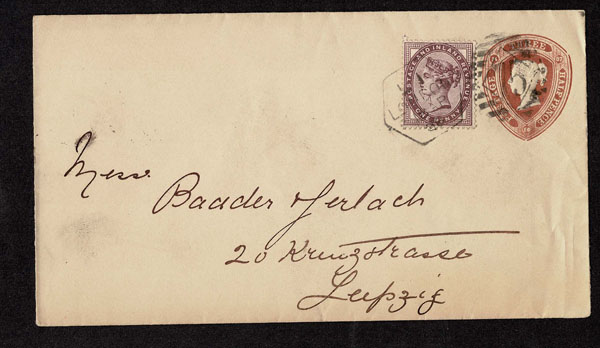 POSTAGE AND INLAND REVENUE
THREE HALF PENCE
Mess.
Baader Gerlach
20 Kreuzstrasse
Leipzig